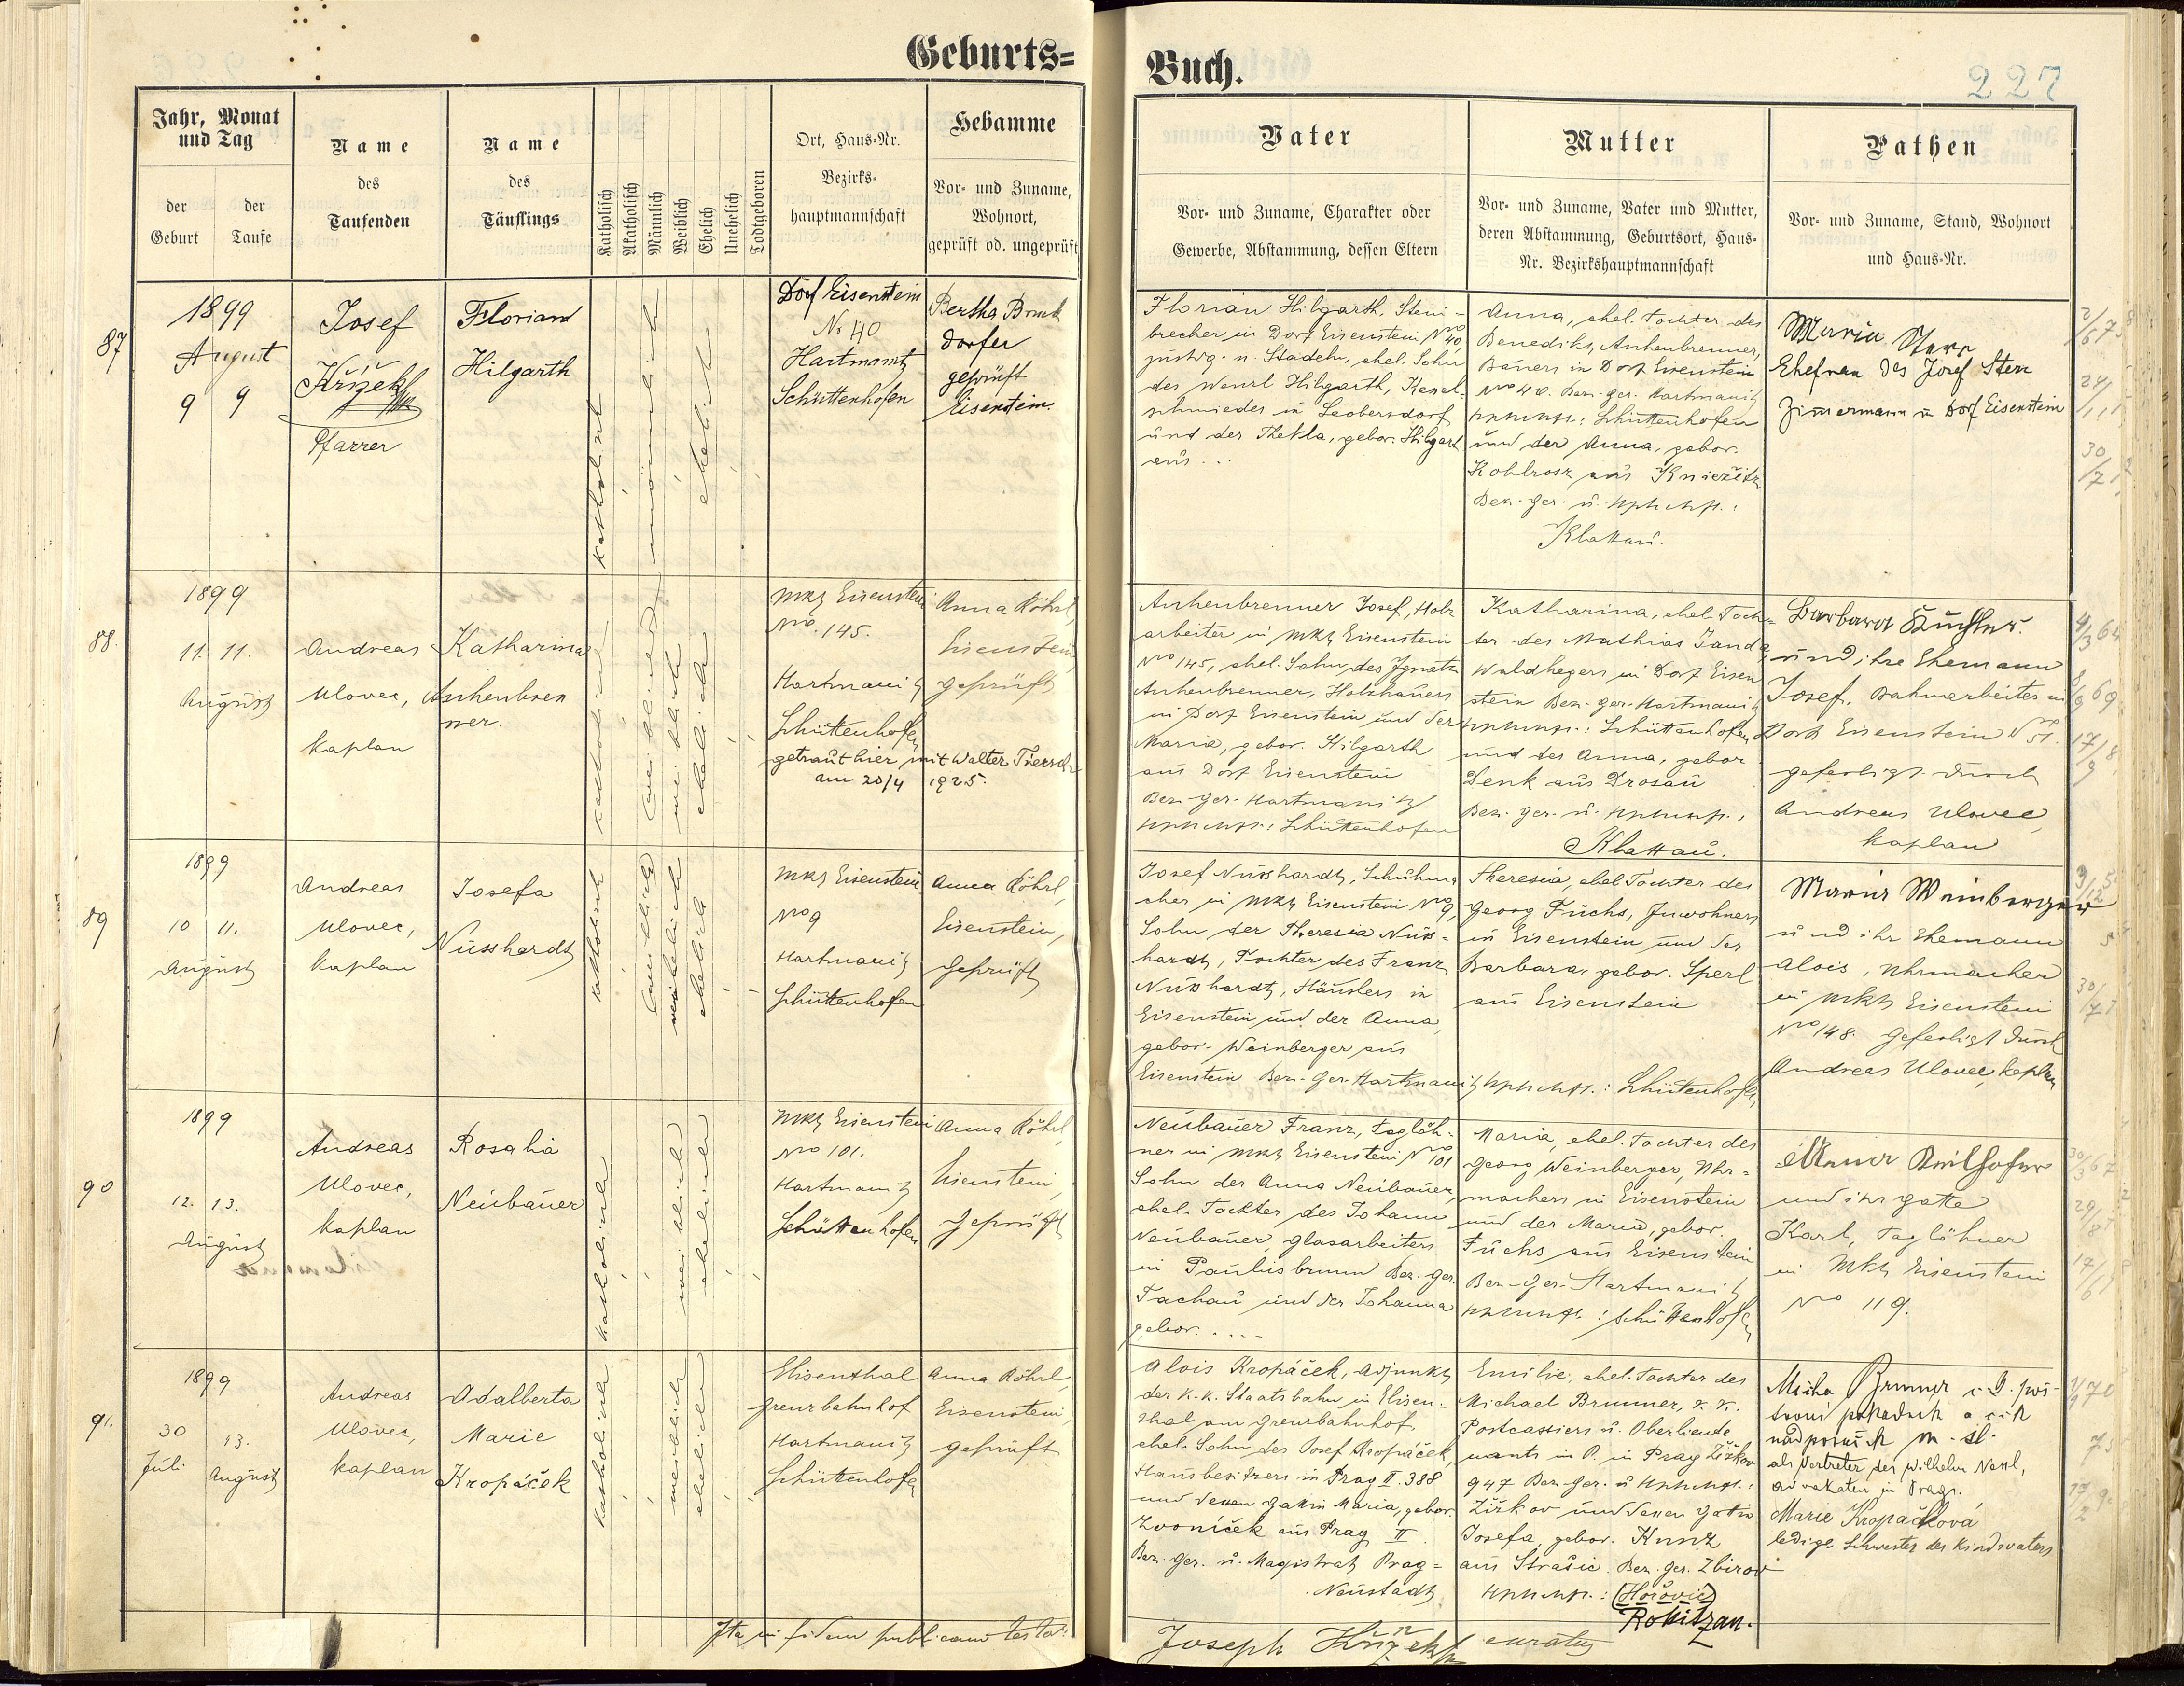 Geburts=
Buch.
227
Jahr, Monat
und Tag
der
Geburt
der
Taufe
Name
des
Taufenden
Name
des
Täuflings
Katholisch
Akatholisch
Männlich
Weiblich
Ehelich
Unehelich
Todtgeboren
Ort, Haus-Nr.
Bezirks-
hauptmannschaft
Hebamme
Vor- und Zuname,
Wohnort,
geprüft od. ungeprüft
Vater
Vor- und Zuname, Charakter oder
Gewerbe, Abstammung, dessen Eltern
Mutter
Vor- und Zuname, Vater und Mutter,
deren Abstammung, Geburtsort, Haus-
Nr. Bezirkshauptmannschaft
Pathen
Vor- und Zuname, Stand, Wohnort
und Haus-Nr.
87
1899
August
9 9
Josef
Křížek
Pfarrer
Florian
Hilgarth
katholisch
männlich
ehelich
Dorf Eisenstein
No 40
Hartmanitz
Schüttenhofen
Bertha Bruck
dorfer
geprüft
Eisenstein.
Florian Hilgarth, Stein-
brecher in Dorf Eisenstein No 40
zustdg. n. Stadeln, ehel. Sohn
des Wenzl Hilgarth, Kessel-
schmiedes in Leobersdorf
und der Thekla, gebor. Hilgart
aus...
Anna, ehel. Tochter des
Benedikt Aschenbrenner,
Bauers in Dorf Eisenstein
No 40. Bez. ger. Hartmanitz
Hptmsch.: Schüttenhofen
und der Anna, gebor.
Kohlross aus Kniežitz
Bez. ger. u. Hptmsch.:
Klattau.
Maria
Ehefrau des Josef Stern
Zimmermann in Dorf Eisenstein
88.
1899.
11. 11.
August
Andreas
Ulovec,
Kaplan
Katharina
Aschenbren
ner.
katholisch
weiblich
ehelich
Mkt Eisenstein
No. 145.
Hartmanitz
Schüttenhofen
Anna Röhrl,
Eisenstein,
geprüft
getraut hier, mit Walter Tiersch
am 20/4 1925.
Aschenbrenner Josef, Holz
arbeiter in Mkt Eisenstein
No 145, ehel. Sohn des Ignatz
Aschenbrenner, Holzhauers
in Dorf Eisenstein und der
Maria, gebor. Hilgarth
aus Dorf Eisenstein
Bez. Ger. Hartmanitz
Hptmsch.: Schüttenhofen
Katharina, ehel. Toch-
ter des Mathias Janda,
Waldhegers in Dorf Eisen
stein Bez. ger. Hartmanitz
Hptmsch.: Schüttenhofen
und der Anna, gebor
Denk aus Drosau
Bez. ger. u. Hptmsch.:
Klattau.
Barbara
und ihr Ehemann
Josef, Bahnarbeiter in
Dorf Eisenstein No 51.
gefertigt durch
Andreas Ulovec,
Kaplan
89
1899
10 11.
August
Andreas
Ulovec,
Kaplan
Josefa
Nusshardt
katholisch
weiblich
ehelich
Mkt Eisenstein
No 9
Hartmanitz
Schüttenhofen
Anna Röhrl,
Eisenstein,
Geprüft
Josef Nusshardt, Schuhma
cher in Mkt Eisenstein No 9,
Sohn der Theresia Nuss-
hardt, Tochter des Franz
Nusshardt, Häuslers in
Eisenstein und der Anna,
gebor. Weinberger aus
Eisenstein Bez. Ger. Hartmanitz Hptmsch.: Schüttenhofen
Theresia, ehel. Tochter des
Georg Fuchs, Inwohners
in Eisenstein und der
Barbara, gebor. Sperl
aus Eisenstein
Maria Weinberger
und ihr Ehemann
Alois, Uhrmacher
in Mkt Eisenstein
No 148. Gefertigt durch
Andreas Ulovec, Kaplan
90
1899
12. 13.
August
Andreas
Ulovec,
Kaplan
Rosalia
Neubauer
katholisch
weiblich
ehelich
Mkt Eisenstein
No 101.
Hartmanitz
Schüttenhofen
Anna Röhrl,
Eisenstein,
Geprüft
Neubauer Franz, Taglöh-
ner in Mkt Eisenstein No 101
Sohn der Anna Neubauer,
ehel. Tochter des Johann
Neubauer, Glasarbeiters
in Paulusbrunn Bez. Ger.
Tachau und der Johanna
gebor. ....
Maria, ehel. Tochter des
Georg Weinberger, Uhr-
machers in Eisenstein
und der Maria, gebor.
Fuchs aus Eisenstein
Bez. Ger. Hartmanitz
Hptmsch.: Schüttenhofen
und ihr Gatte
Karl, Taglöhner
in Mkt Eisenstein
No 119.
91.
1899
30 13.
Juli August
Andreas
Ulovec,
Kaplan
Adalberta
Marie
Kropáček
katholisch
weiblich
ehelich
Elisenthal
Grenzbahnhof
Hartmanitz
Schüttenhofen
Anna Röhrl,
Eisenstein,
geprüft
Alois Kropáček, Adjunkt
der K. K. Staatsbahn in Elisen-
thal am Grenzbahnhof,
ehel. Sohn des Josef Kropáček,
Hausbesitzers in Prag II. 388
und dessen Gattin Maria, gebor.
Zvoníček aus Prag II
Bez. Ger. u. Magistrat Prag-
Neustadt
Emilie, ehel. Tochter des
Michael Brunner, k. k.
Postcassiers u. Oberlieute
nants in P. in Prag Žižkov
947 Bez. Ger. u Hptmsch.:
Žižkov und dessen Gattin
Josefa, gebor. Kunz
aus Strašic. Bez. ger. Zbirov
Hptmsch.: (Hořovic)
Rokitzan.
Brunner
als Vertreter des Wilhelm
advokaten in Prag.
Marie Kropáčková
ledige Schwester des Kindsvaters
Ita in fidem publicam testor:
Joseph Křížek curatus